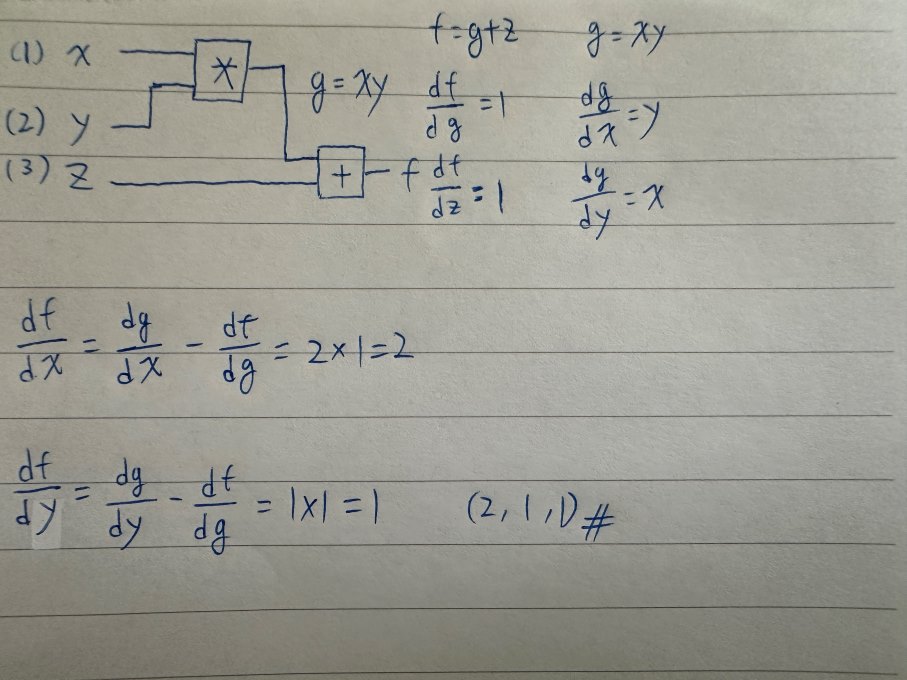 (1) x f=g+z g=xy
(2) y * g=xy df/dg=1 dg/dx=y
(3) z + f df/dz=1 dg/dy=x
df/dx = dg/dx - df/dg = 2x1=2
df/dy = dg/dy - df/dg = 1x1=1 (2,1,1)#